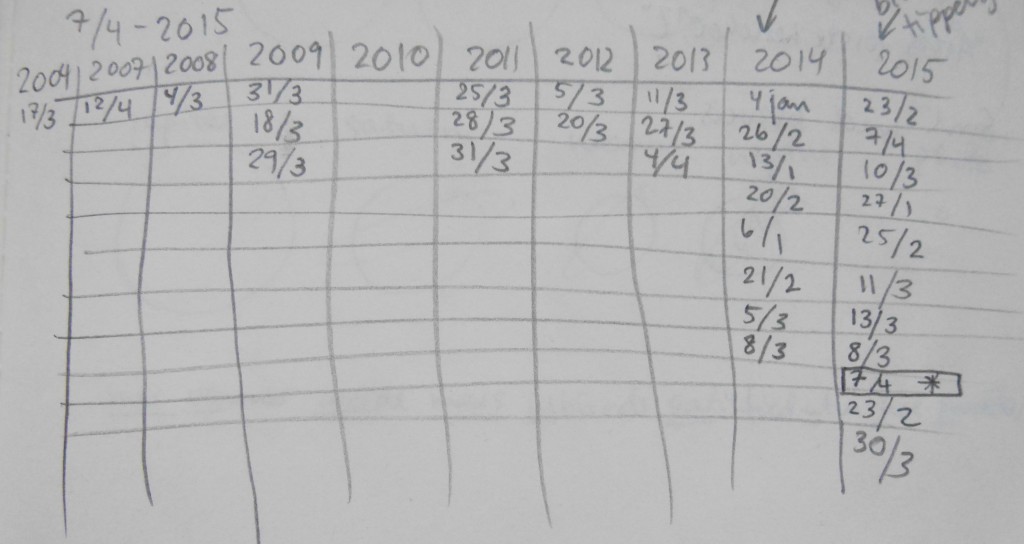 7/4 - 2015
tipping
2004 2007 2008 2009 2010 2011 2012 2013 2014 2015
17/3 12/4 4/3 31/3 25/3 5/3 11/3 4 jan 23/2
18/3 28/3 20/3 27/3 26/2 7/4
29/3 31/3 4/4 13/1 10/3
20/2 27/1
6/1 25/2
21/2 11/3
5/3 13/3
8/3 8/3
7/4 *
23/2
30/3